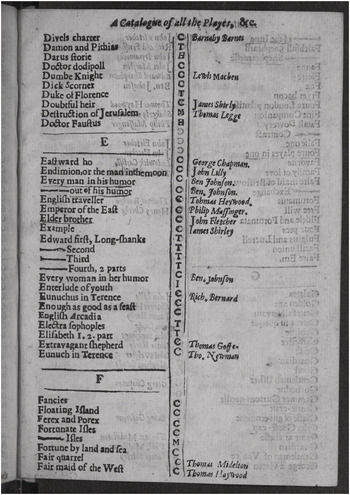 A Catalogue of all the Playes, &c.
Divels charter C Barnaby Barnes
Damon and Pithias
Darus storie
Doctor dodipoll C
Dumbe Knight C Lewis Machen
Dick Scorner
Duke of Florence
Doubtful heir James Shirly
Destruction of Jerusalem Thomas Legge
Doctor Faustus
E
Eastward ho C George Chapman.
Endimion, or the man in the moon C John Lilly
Every man in his humor C Ben Johnson.
—out of his humor C Ben. Johnson.
English traveller C Thomas Heywood.
Emperor of the East C Philip Massinger.
Elder brother C John Fletcher
Example C James Shirley
Edward first, Long-shanks
—Second
—Third
—Fourth, 2 parts
Every woman in her humor C Ben. Johnson
Enterlude of youth I
Eunuchus in Terence C Rich. Bernard
Enough as good as a feast C
English Arcadia
Electra sophoples T
Elisabeth 1, 2. part T
Extravagant shepherd C Thomas Goffe.
Eunuch in Terence C Tho. Newman
F
Fancies C
Floating Island C
Ferex and Porex
Fortunate Isles
—Isles
Fortune by land and sea
Fair quarrel C Thomas Midelton
Fair maid of the West C Thomas Haywood